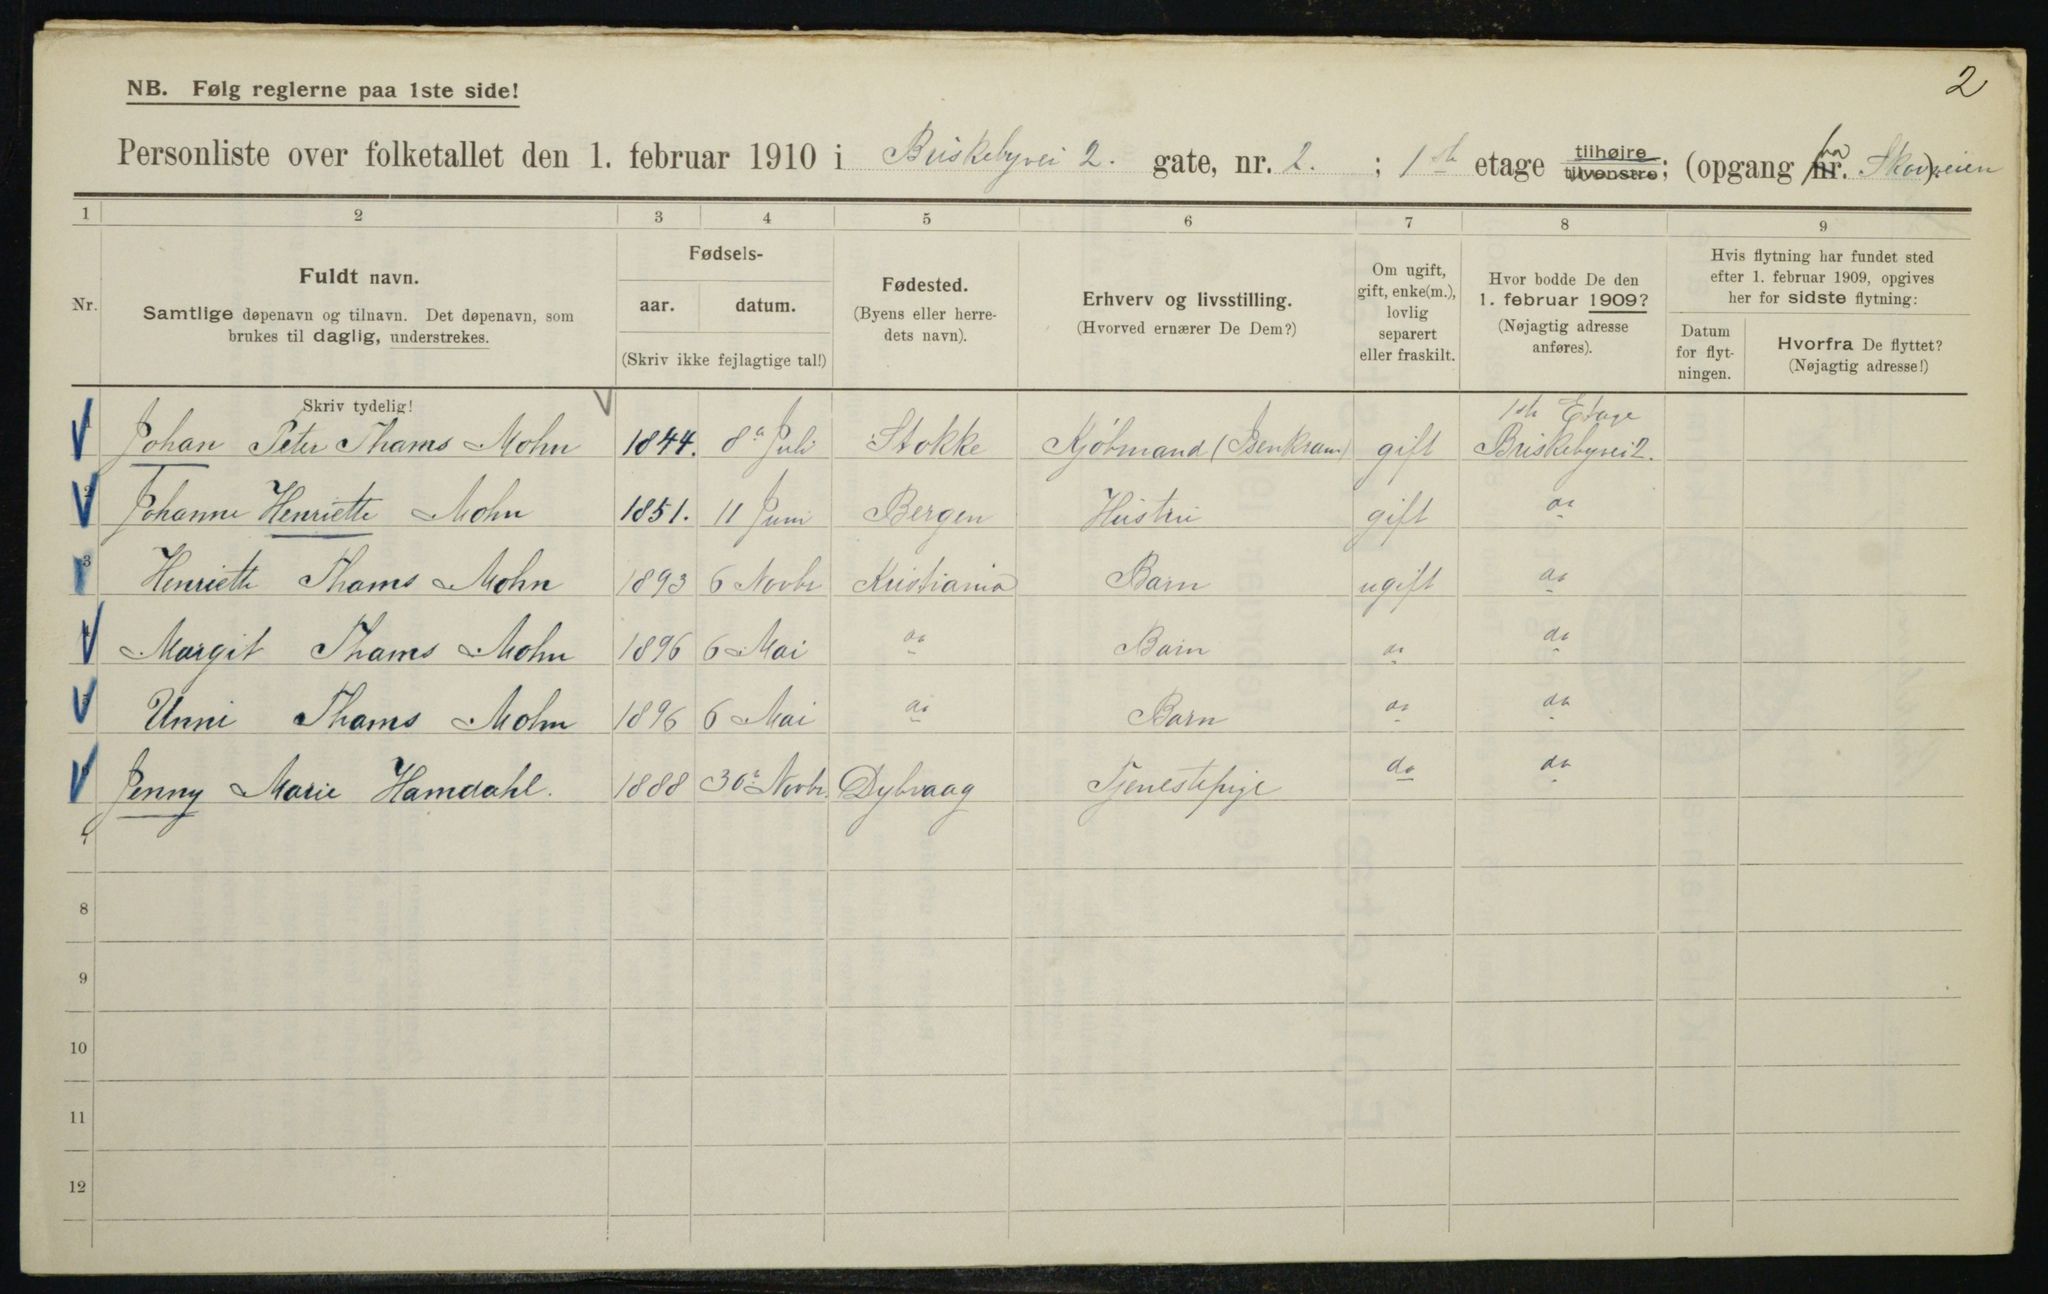 2
NB. Følg reglerne paa 1ste side!
Personliste over folketallet den 1. februar 1910 i Briskebyvei 2. gate, nr. 2. ; 1ste etage tilhøire tilvenstre; (opgang nr. fra Skovveien).
1 2 3 4 5 6 7 8 9
Nr.
Fuldt navn.
Samtlige døpenavn og tilnavn. Det døpenavn, som
brukes til daglig, understrekes.
Fødsels-
aar. datum.
(Skriv ikke fejlagtige tal!)
Fødested.
(Byens eller herre-
dets navn).
Erhverv og livsstilling.
(Hvorved ernærer De Dem?)
Om ugift,
gift, enke(m.),
lovlig
separert
eller fraskilt.
Hvor bodde De den
1. februar 1909?
(Nøjagtig adresse
anføres).
Hvis flytning har fundet sted
efter 1. februar 1909, opgives
her for sidste flytning:
Datum
for flyt-
ningen.
Hvorfra De flyttet?
(Nøjagtig adresse!)
Skriv tydelig!
1ste Etage
Johan Peter Thams Mohn 1844. 8de Juli Stokke Kjöbmand (Isenkram) gift Briskebyvei 2.
2 Johanne Henriette Mohn 1851. 11 Juni Bergen Hustru gift do
3 Henriette Thams Mohn 1893 6 Novbr Kristiania Barn ugift do
4 Margit Thams Mohn 1896 6 Mai do Barn do do
5 Unni Thams Mohn 1896 6 Mai do Barn do do
Jenny Marie Hamdahl. 1888 30te Novbr. Dybvaag Tjenestepige do do
8
9
10
11
12